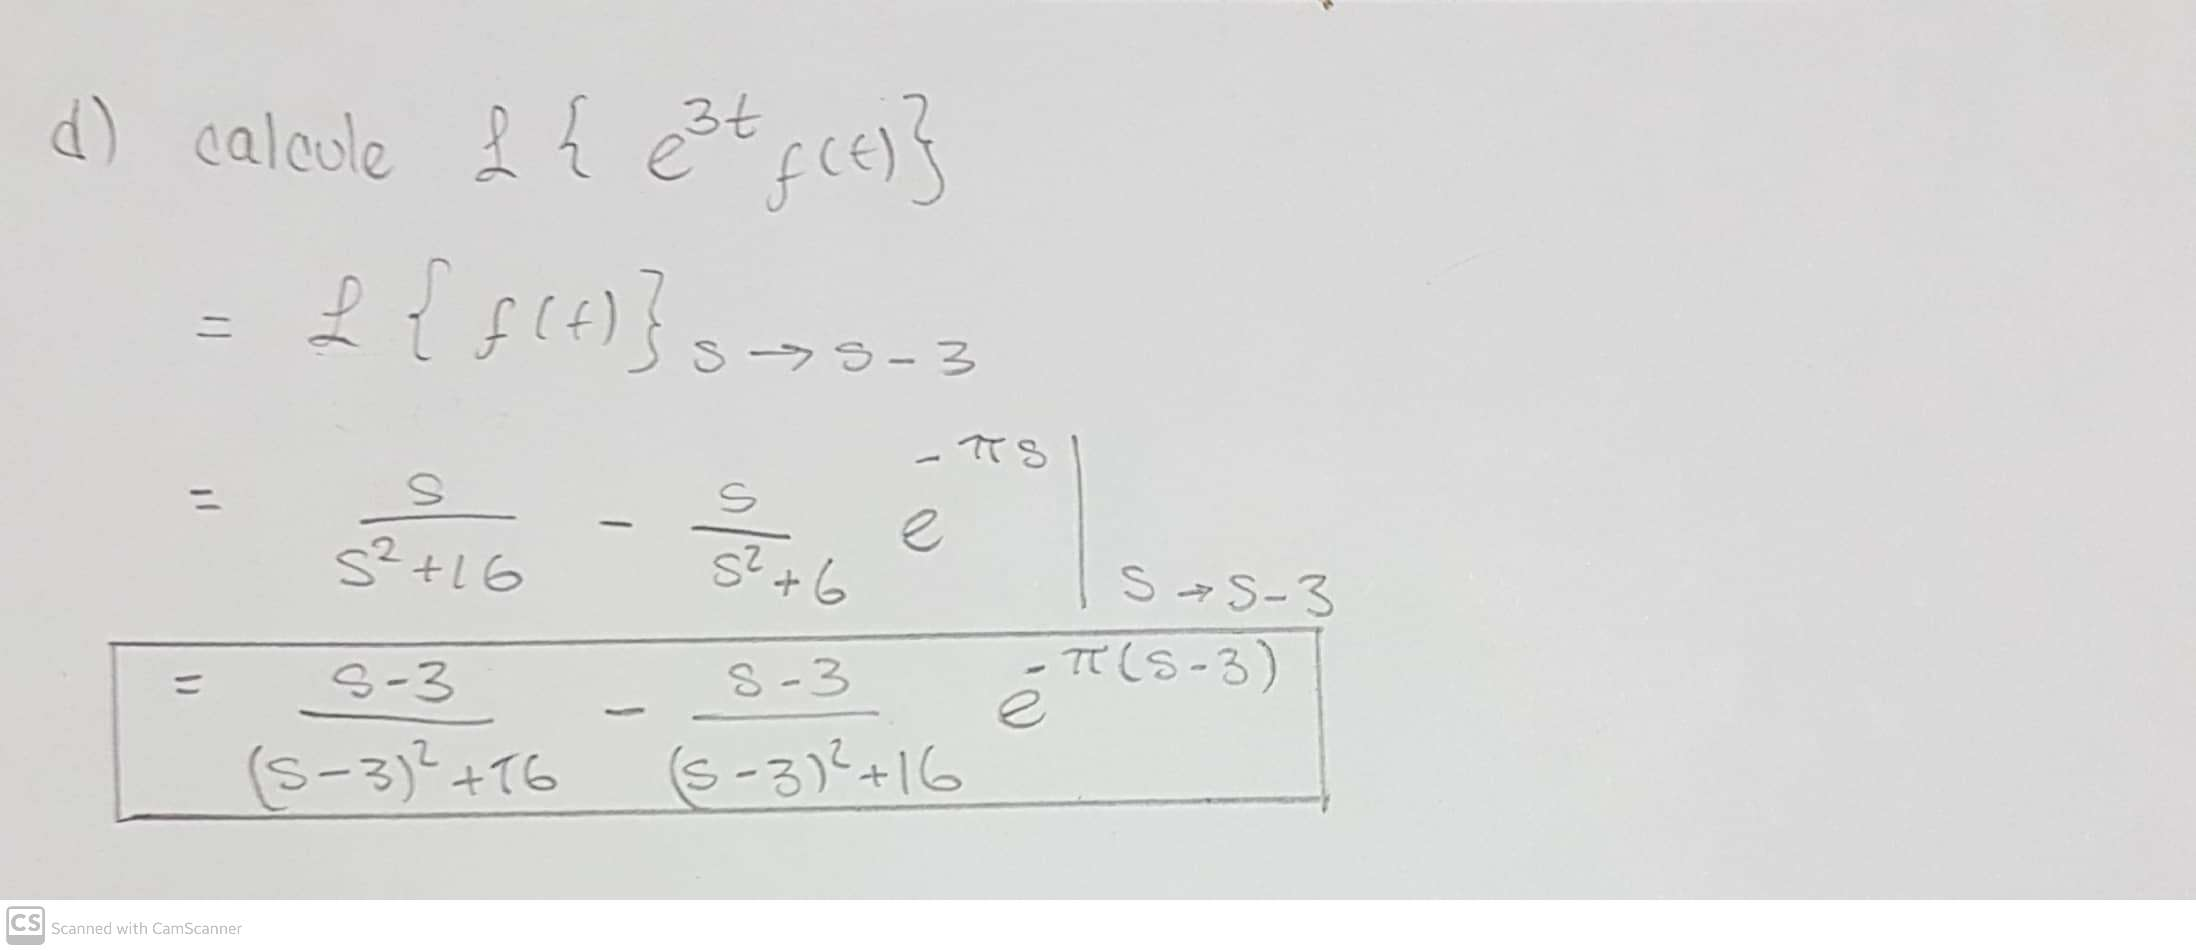 d) calcule ℒ{ e^{3t} f(t)}
= ℒ{ f(t)} s→s-3
= s/(s²+16) - s/(s²+6) e^{-πs} | s→s-3
= (s-3)/((s-3)²+16) - (s-3)/((s-3)²+16) e^{-π(s-3)}
CS Scanned with CamScanner